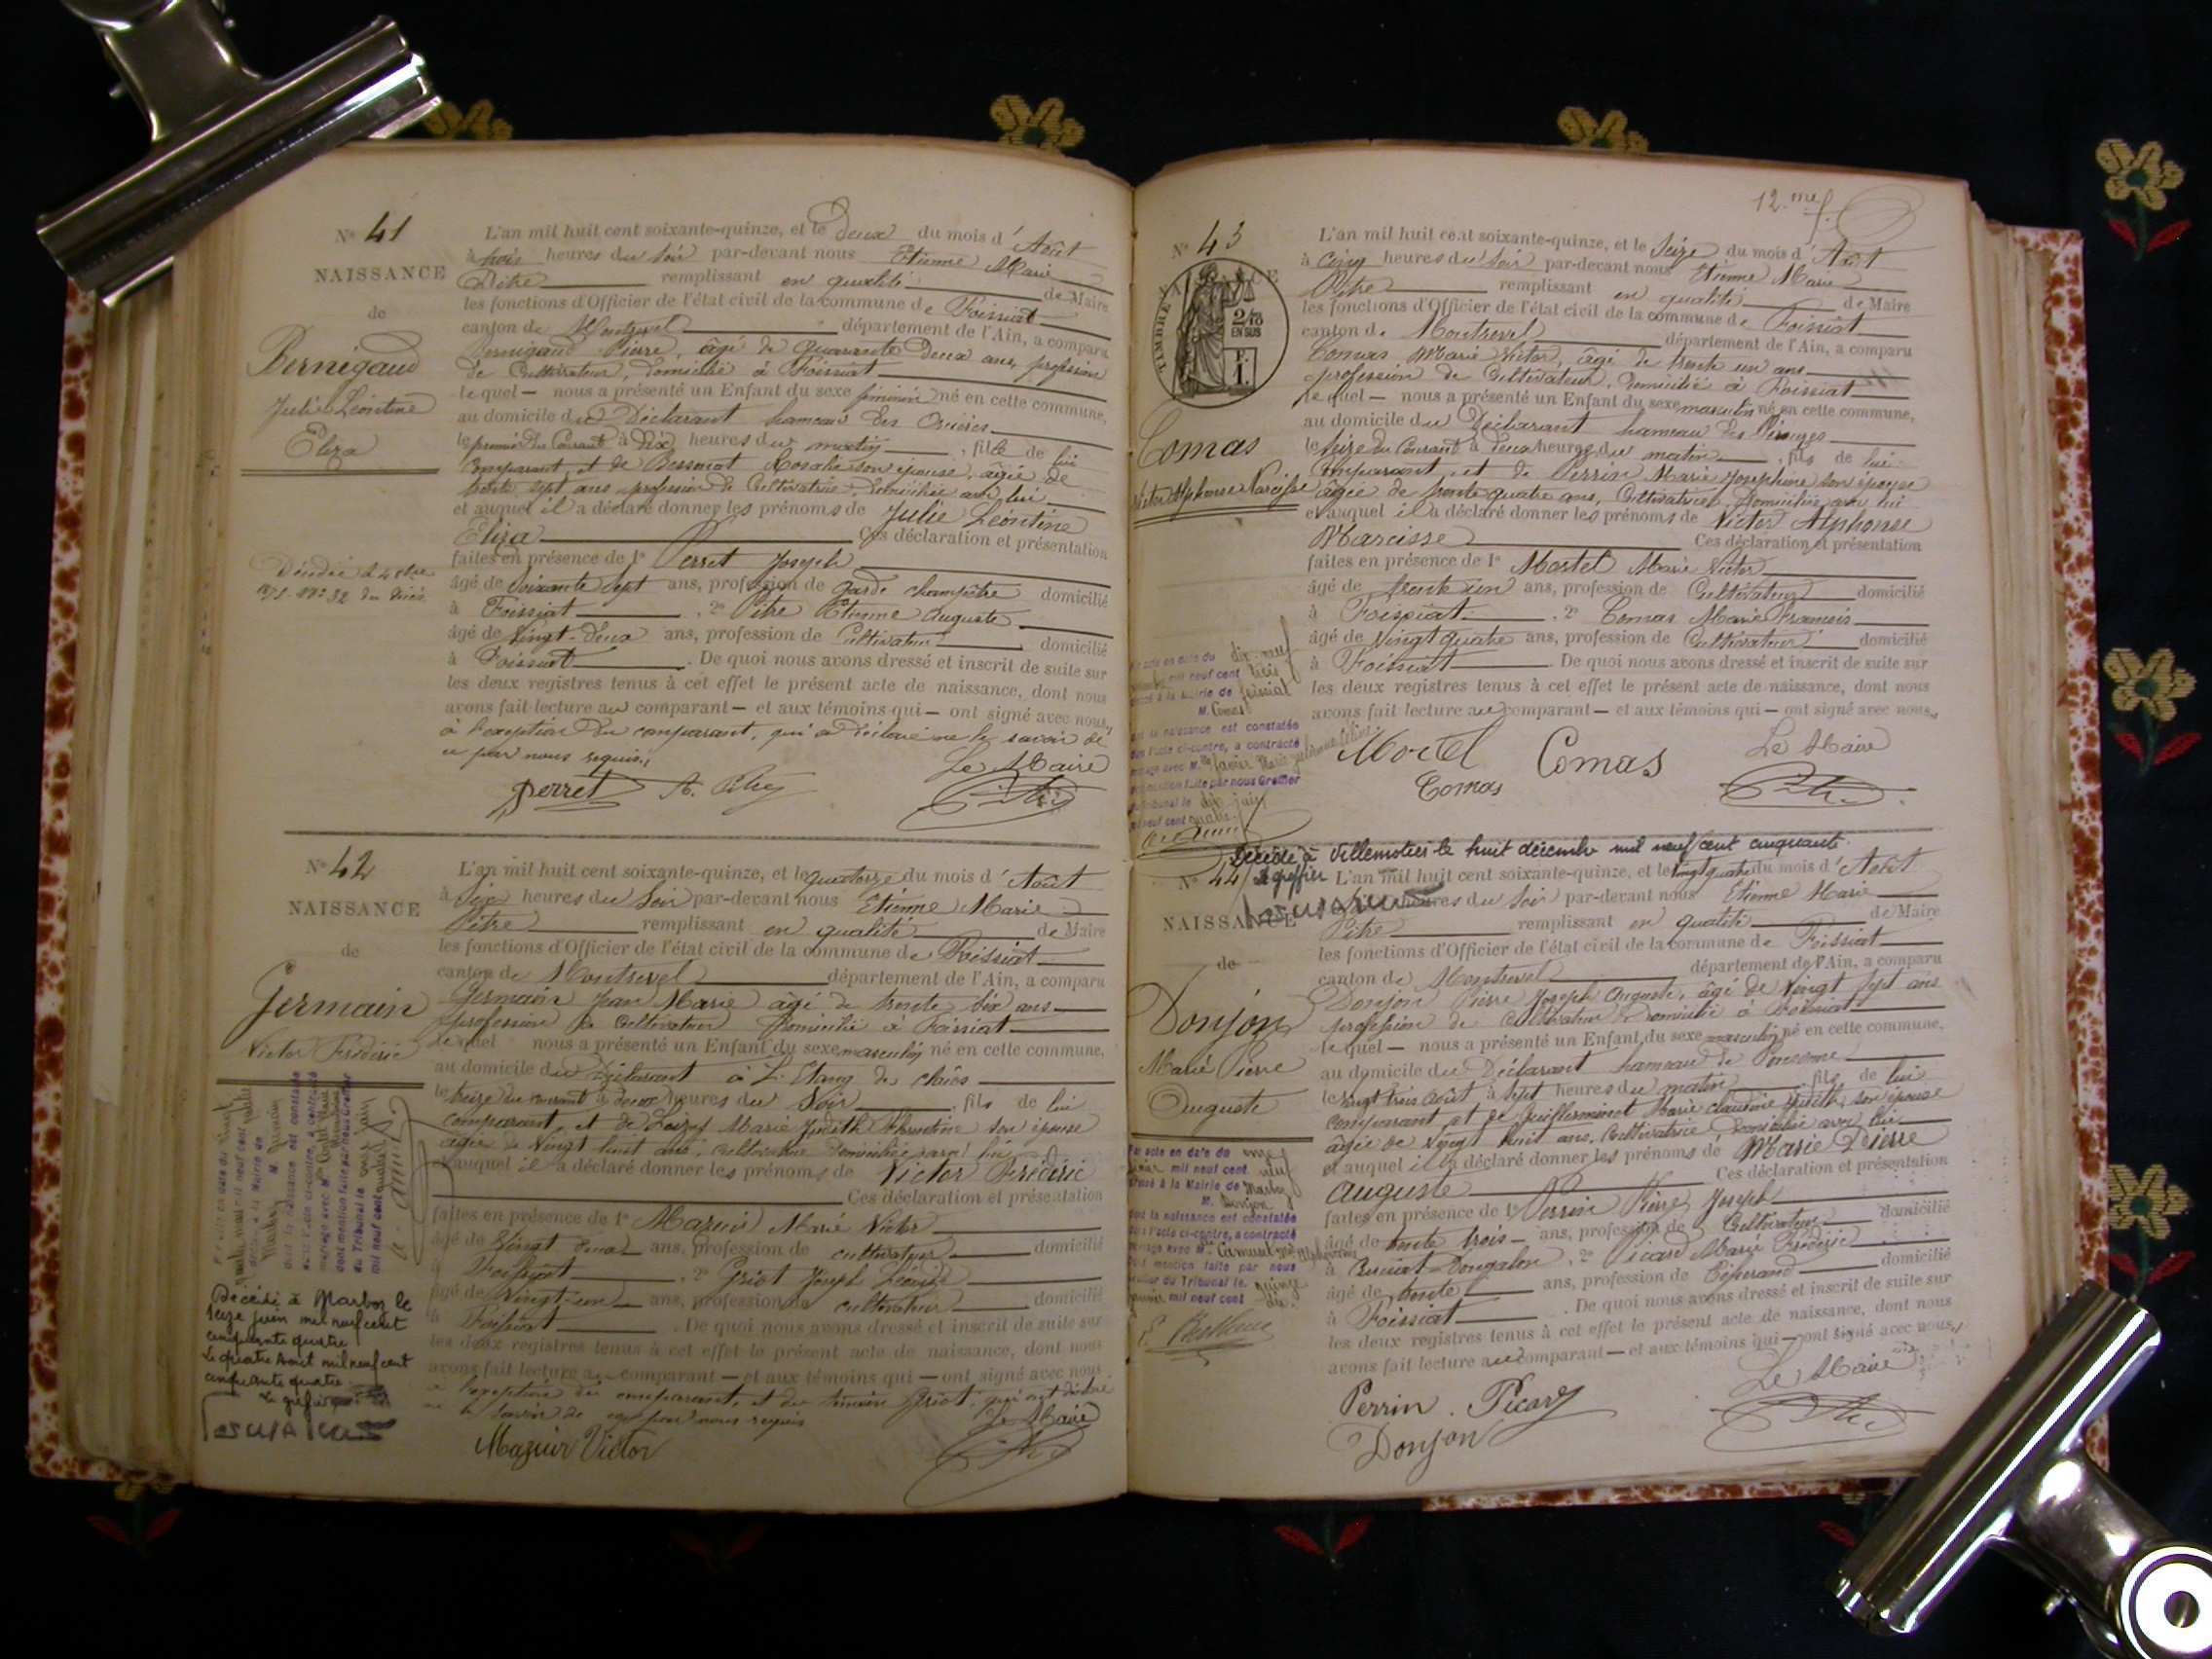 N° 41
NAISSANCE
de
Bernigaud
Julie Léontine
Eliza
Décédée le 4 8bre
1875. N° 32 des décès
L'an mil huit cent soixante-quinze, et le deux du mois d'Août
à trois heures du soir par-devant nous Etienne Marie
Pitre remplissant en qualité de Maire
les fonctions d'Officier de l'état civil de la commune de Foissiat
canton de Montrevel département de l'Ain, a comparu
Bernigaud Pierre, âgé de quarante deux ans, profession
de Cultivateur, domicilié à Foissiat
lequel — nous a présenté un Enfant du sexe féminin né en cette commune,
au domicile du Déclarant hameau des
le premier du Courant à dix heures du matin, fille de lui
Comparant, et de Rosalie son épouse, âgée de
trente sept ans profession de Cultivatrice, domiciliée avec lui
et auquel il a déclaré donner les prénoms de Julie Léontine
Eliza Ces déclaration et présentation
faites en présence de 1° Perret Joseph
âgé de soixante sept ans, profession de garde champêtre domicilié
à Foissiat, 2° Pitre Etienne Auguste
âgé de vingt-deux ans, profession de Cultivateur domicilié
à Foissiat. De quoi nous avons dressé et inscrit de suite sur
les deux registres tenus à cet effet le présent acte de naissance, dont nous
avons fait lecture au comparant — et aux témoins qui — ont signé avec nous,
à l'exception du comparant, qui a déclaré ne le savoir de
ce par nous requis.
Le Maire
Perret
N° 42
NAISSANCE
de
Germain
Victor Frédéric
L'an mil huit cent soixante-quinze, et le quatorze du mois d'Août
à six heures du soir par-devant nous Etienne Marie
Pitre remplissant en qualité de Maire
les fonctions d'Officier de l'état civil de la commune de Foissiat
canton de Montrevel département de l'Ain, a comparu
Germain Jean Marie âgé de trente dix ans
profession de Cultivateur domicilié à Foissiat
lequel nous a présenté un Enfant du sexe masculin né en cette commune,
au domicile du Déclarant à L'Etang du
le treize du courant à deux heures du soir, fils de lui
comparant, et de Marie Judith son épouse
âgée de vingt huit ans, cultivatrice domiciliée avec lui
et auquel il a déclaré donner les prénoms de Victor Frédéric
Ces déclaration et présentation
faites en présence de 1° Mazuir Marie Victor
âgé de vingt deux ans, profession de cultivateur domicilié
à Foissiat, 2° Griot Joseph
âgé de vingt-un ans, profession de cultivateur domicilié
à Foissiat. De quoi nous avons dressé et inscrit de suite sur
les deux registres tenus à cet effet le présent acte de naissance, dont nous
avons fait lecture au comparant — et aux témoins qui — ont signé avec nous
à l'exception du comparant, et du témoin Griot, qui ont déclaré
ne le savoir de ce par nous requis
Le Maire
Mazuir Victor
Décédé à Marboz le
seize juin mil neuf cent
cinquante quatre
Le quatre Août mil neuf cent
cinquante quatre
Le greffier
12.me f.
N° 43
TIMBRE
2/10
EN SUS
F.
1.
Comas
Victor Alphonse Narcisse
L'an mil huit cent soixante-quinze, et le seize du mois d'Août
à cinq heures du soir par-devant nous Etienne Marie
Pitre remplissant en qualité de Maire
les fonctions d'Officier de l'état civil de la commune de Foissiat
canton de Montrevel département de l'Ain, a comparu
Comas Marie Victor, âgé de trente un ans
profession de Cultivateur, domicilié à Foissiat
lequel — nous a présenté un Enfant du sexe masculin né en cette commune,
au domicile du Déclarant hameau des
le seize du Courant à deux heures du matin, fils de lui
Comparant, et de Perrin Marie Joséphine son épouse
âgée de trente quatre ans, Cultivatrice, domiciliée avec lui
et auquel il a déclaré donner les prénoms de Victor Alphonse
Narcisse Ces déclaration et présentation
faites en présence de 1° Mortel Marie Victor
âgé de trente un ans, profession de Cultivateur domicilié
à Foissiat. 2° Comas Marie François
âgé de vingt quatre ans, profession de Cultivateur domicilié
à Foissiat. De quoi nous avons dressé et inscrit de suite sur
les deux registres tenus à cet effet le présent acte de naissance, dont nous
avons fait lecture au comparant — et aux témoins qui — ont signé avec nous.
Mortel Comas Le Maire
Comas
acte en date du dix-neuf
mil neuf cent trois
à la Mairie de Foissiat
M. Comas
dont la naissance est constatée
dans l'acte ci-contre, a contracté
mariage avec M.lle
mention faite par nous Greffier
du Tribunal le dix juin
mil neuf cent quatre
Décédé à Villemotier le huit décembre mil neuf cent cinquante
Le greffier
N° 44
NAISSANCE
de
Donjon
Marie Pierre
Auguste
L'an mil huit cent soixante-quinze, et le vingt quatre du mois d'Août
heures du soir par-devant nous Etienne Marie
Pitre remplissant en qualité de Maire
les fonctions d'Officier de l'état civil de la commune de Foissiat
canton de Montrevel département de l'Ain, a comparu
Donjon Pierre Joseph Auguste, âgé de vingt sept ans
profession de Cultivateur domicilié à Foissiat
lequel — nous a présenté un Enfant du sexe masculin né en cette commune,
au domicile du Déclarant hameau de
le vingt trois Août à sept heures du matin, fils de lui
comparant et de Guillerminet Marie Claudine Judith, son épouse
âgée de vingt huit ans, Cultivatrice domiciliée avec lui
et auquel il a déclaré donner les prénoms de Marie Pierre
Auguste Ces déclaration et présentation
faites en présence de 1° Perrin Pierre Joseph
âgé de trente trois — ans, profession de Cultivateur domicilié
à, 2° Picard Marie Frédéric
âgé de trente ans, profession de Tisserand domicilié
à Foissiat. De quoi nous avons dressé et inscrit de suite sur
les deux registres tenus à cet effet le présent acte de naissance, dont nous
avons fait lecture au comparant — et aux témoins qui — ont signé avec nous.
Le Maire
Perrin. Picard
Donjon
Par acte en date du onze
mil neuf cent neuf
dressé à la Mairie de Marboz
M. Donjon
dont la naissance est constatée
dans l'acte ci-contre, a contracté
mariage avec M.lle
dont mention faite par nous
Greffier du Tribunal le quinze
janvier mil neuf cent dix.